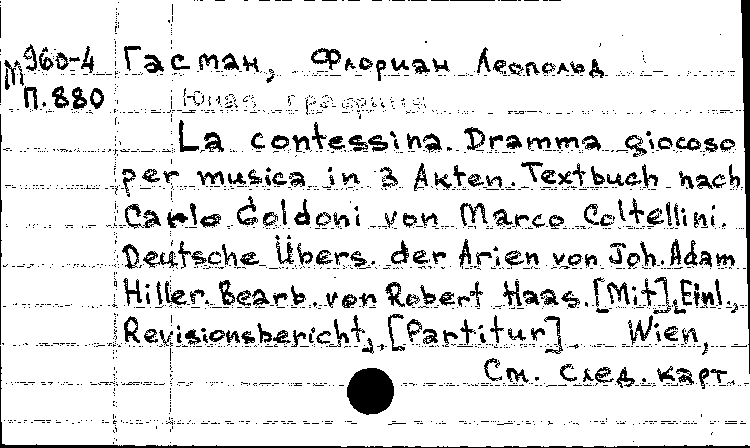 М 960-4 Гасман, Флориан Леопольд
П.880 Юная графиня
La contessina. Dramma giocoso
per musica in 3 Akten. Textbuch nach
Carlo Goldoni von Marco Coltellini.
Deutsche Übers. der Arien von Joh. Adam
Hiller. Bearb. von Robert Haas. [Mit] Einl.,
Revisionsbericht, [Partitur]. Wien,
См. след. карт.